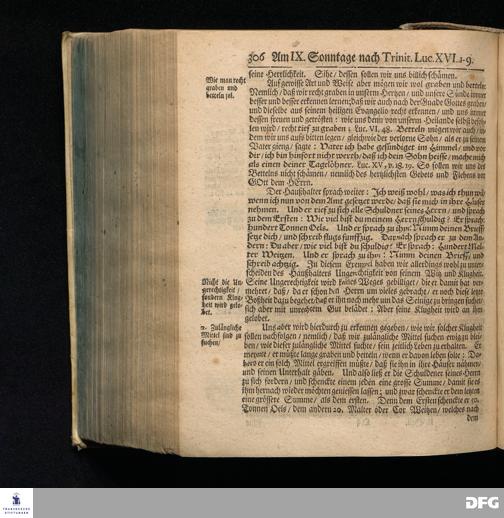 306 Am IX. Sonntage nach Trinit. Luc. XVI. 1-9.
seine Herrlichkeit. Sihe / dessen sollen wir uns billich schämen.
Wie man recht graben und betteln sol.
Auf gewisse Art und Weise aber mögen wir wol graben und betteln:
Nemlich / daß wir recht graben in unserm Hertzen / und unsere Sünde immer
besser und besser erkennen lernen; daß wir auch nach der Gnade Gottes graben /
und dieselbe aus seinem heiligen Evangelio recht erkennen / und uns immer
dessen freuen und getrösten: wie uns denn von unserm Heilande selbst
wird / recht tief zu graben: Luc. VI, 48. Betteln mögen wir auch /
dem wir uns aufs bitten legen / gleichwie der verlorne Sohn / als er zu seinem
Vater gieng / sagte: Vater ich habe gesündiget im Himmel / und vor
dir / ich bin hinfort nicht werth / daß ich dein Sohn heisse / mache mich
als einen deiner Tagelöhner. Luc. XV, v. 18. 19. So sollen wir uns des
Bettelns nicht schämen / nemlich des hertzlichsten Gebets und Flehens vor
GOtt dem HErrn.
Der Haußhalter sprach weiter: Ich weiß wohl / was ich thun wil /
wenn ich nun von dem Amt gesetzet werde / daß sie mich in ihre Häuser
nehmen. Und er rief zu sich alle Schuldner seines Herrn / und sprach
zu dem Ersten: Wie viel bist du meinem Herrn schuldig? Er sprach:
hundert Tonnen Oels. Und er sprach zu ihm: Nimm deinen Brieff /
setze dich / und schreib flugs funffzig. Darnach sprach er zu dem An-
dern: Du aber / wie viel bist du schuldig? Er sprach: Hundert Mal-
ter Weitzen. Und er sprach zu ihm: Nimm deinen Brieff / und
schreib achtzig. In diesem Exempel haben wir allerdings wohl zu unter-
scheiden des Haußhalters Ungerechtigkeit von seinem Witz und Klugheit.
Nicht die Un-
gerechtigkeit /
sondern Klug-
heit wird gelo-
bet.
Seine Ungerechtigkeit wird keines Weges gebilliget / die er damit
mehret / daß / da er schon den Herrn um vieles gebracht / er noch diese letzte
Boßheit dazu begehet / daß er ihn noch mehr um das Seinige zu bringen suchet /
sich aber mit unrechtem Gut beladet: Aber seine Klugheit wird an ihm
gelobet.
2. Zulängliche
Mittel sind zu
suchen /
Uns aber wird hierdurch zu erkennen gegeben / wie wir solcher Klugheit
sollen nachfolgen / nemlich / daß wir zulängliche Mittel suchen ewig zu
ben / wie dieser zulängliche Mittel suchte / sein zeitlich Leben zu erhalten. Er
meynte / er müßte lange graben und betteln / wenn er davon leben solte: Da-
hero er ein solch Mittel ergreiffen müßte / daß sie ihn in ihre Häuser nähmen /
und seinen Unterhalt gäben. Und also ließ er die Schuldener seines Herrn
zu sich fordern / und schenckte einem jeden eine grosse Summe / damit sie es
ihm hernach wieder möchten geniessen lassen; und zwar schenckte er dem letzten
eine grössere Summe / als dem ersten. Denn dem Ersten schenckte er 50.
Tonnen Oels / dem andern 20. Malter oder Cor Weitzen / welches nach
dem
FRANCKESCHE
STIFTUNGEN
DFG